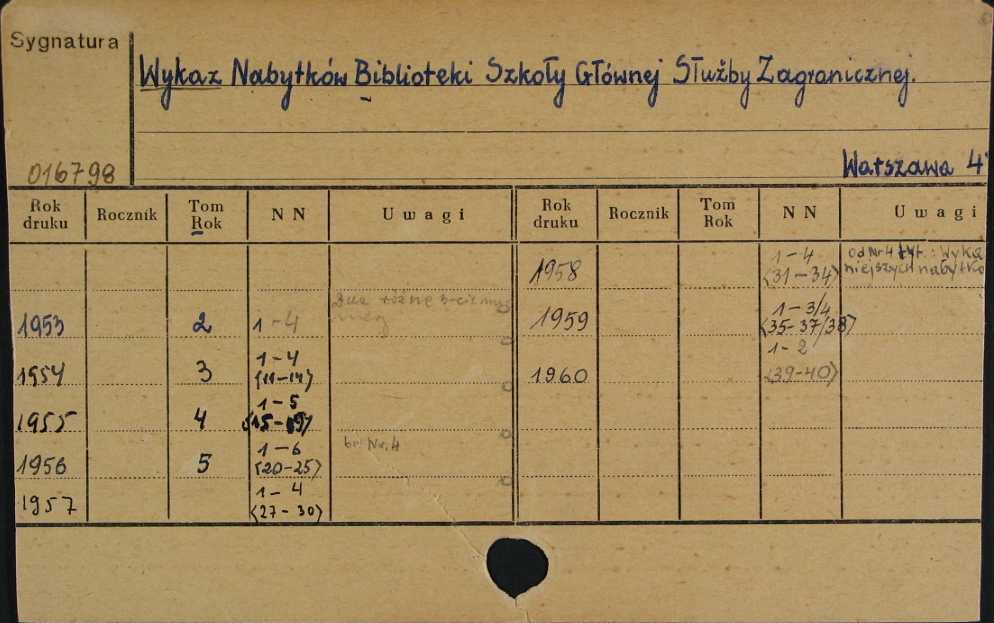 Sygnatura
Wykaz Nabytków Biblioteki Szkoły Głównej Służby Zagranicznej.
016798
Warszawa 4
Rok druku Rocznik Tom Rok NN Uwagi Rok druku Rocznik Tom Rok NN Uwagi
1953 2 1-4
1954 3 1-4 (11-14)
1955 4 1-5 (15-19)
1956 5 1-6 (20-25) br. Nr. 4
1957 1-4 (27-30)
1958 1-4 (31-34) od Nr 4 tyt.: Wyka niejszych nabytkó
1959 1-3/4 (35-37/38)
1960 1-2 (39-40)